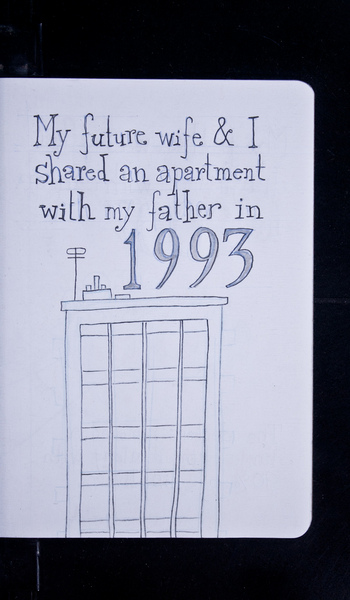 My future wife & I
shared an apartment
with my father in
1993